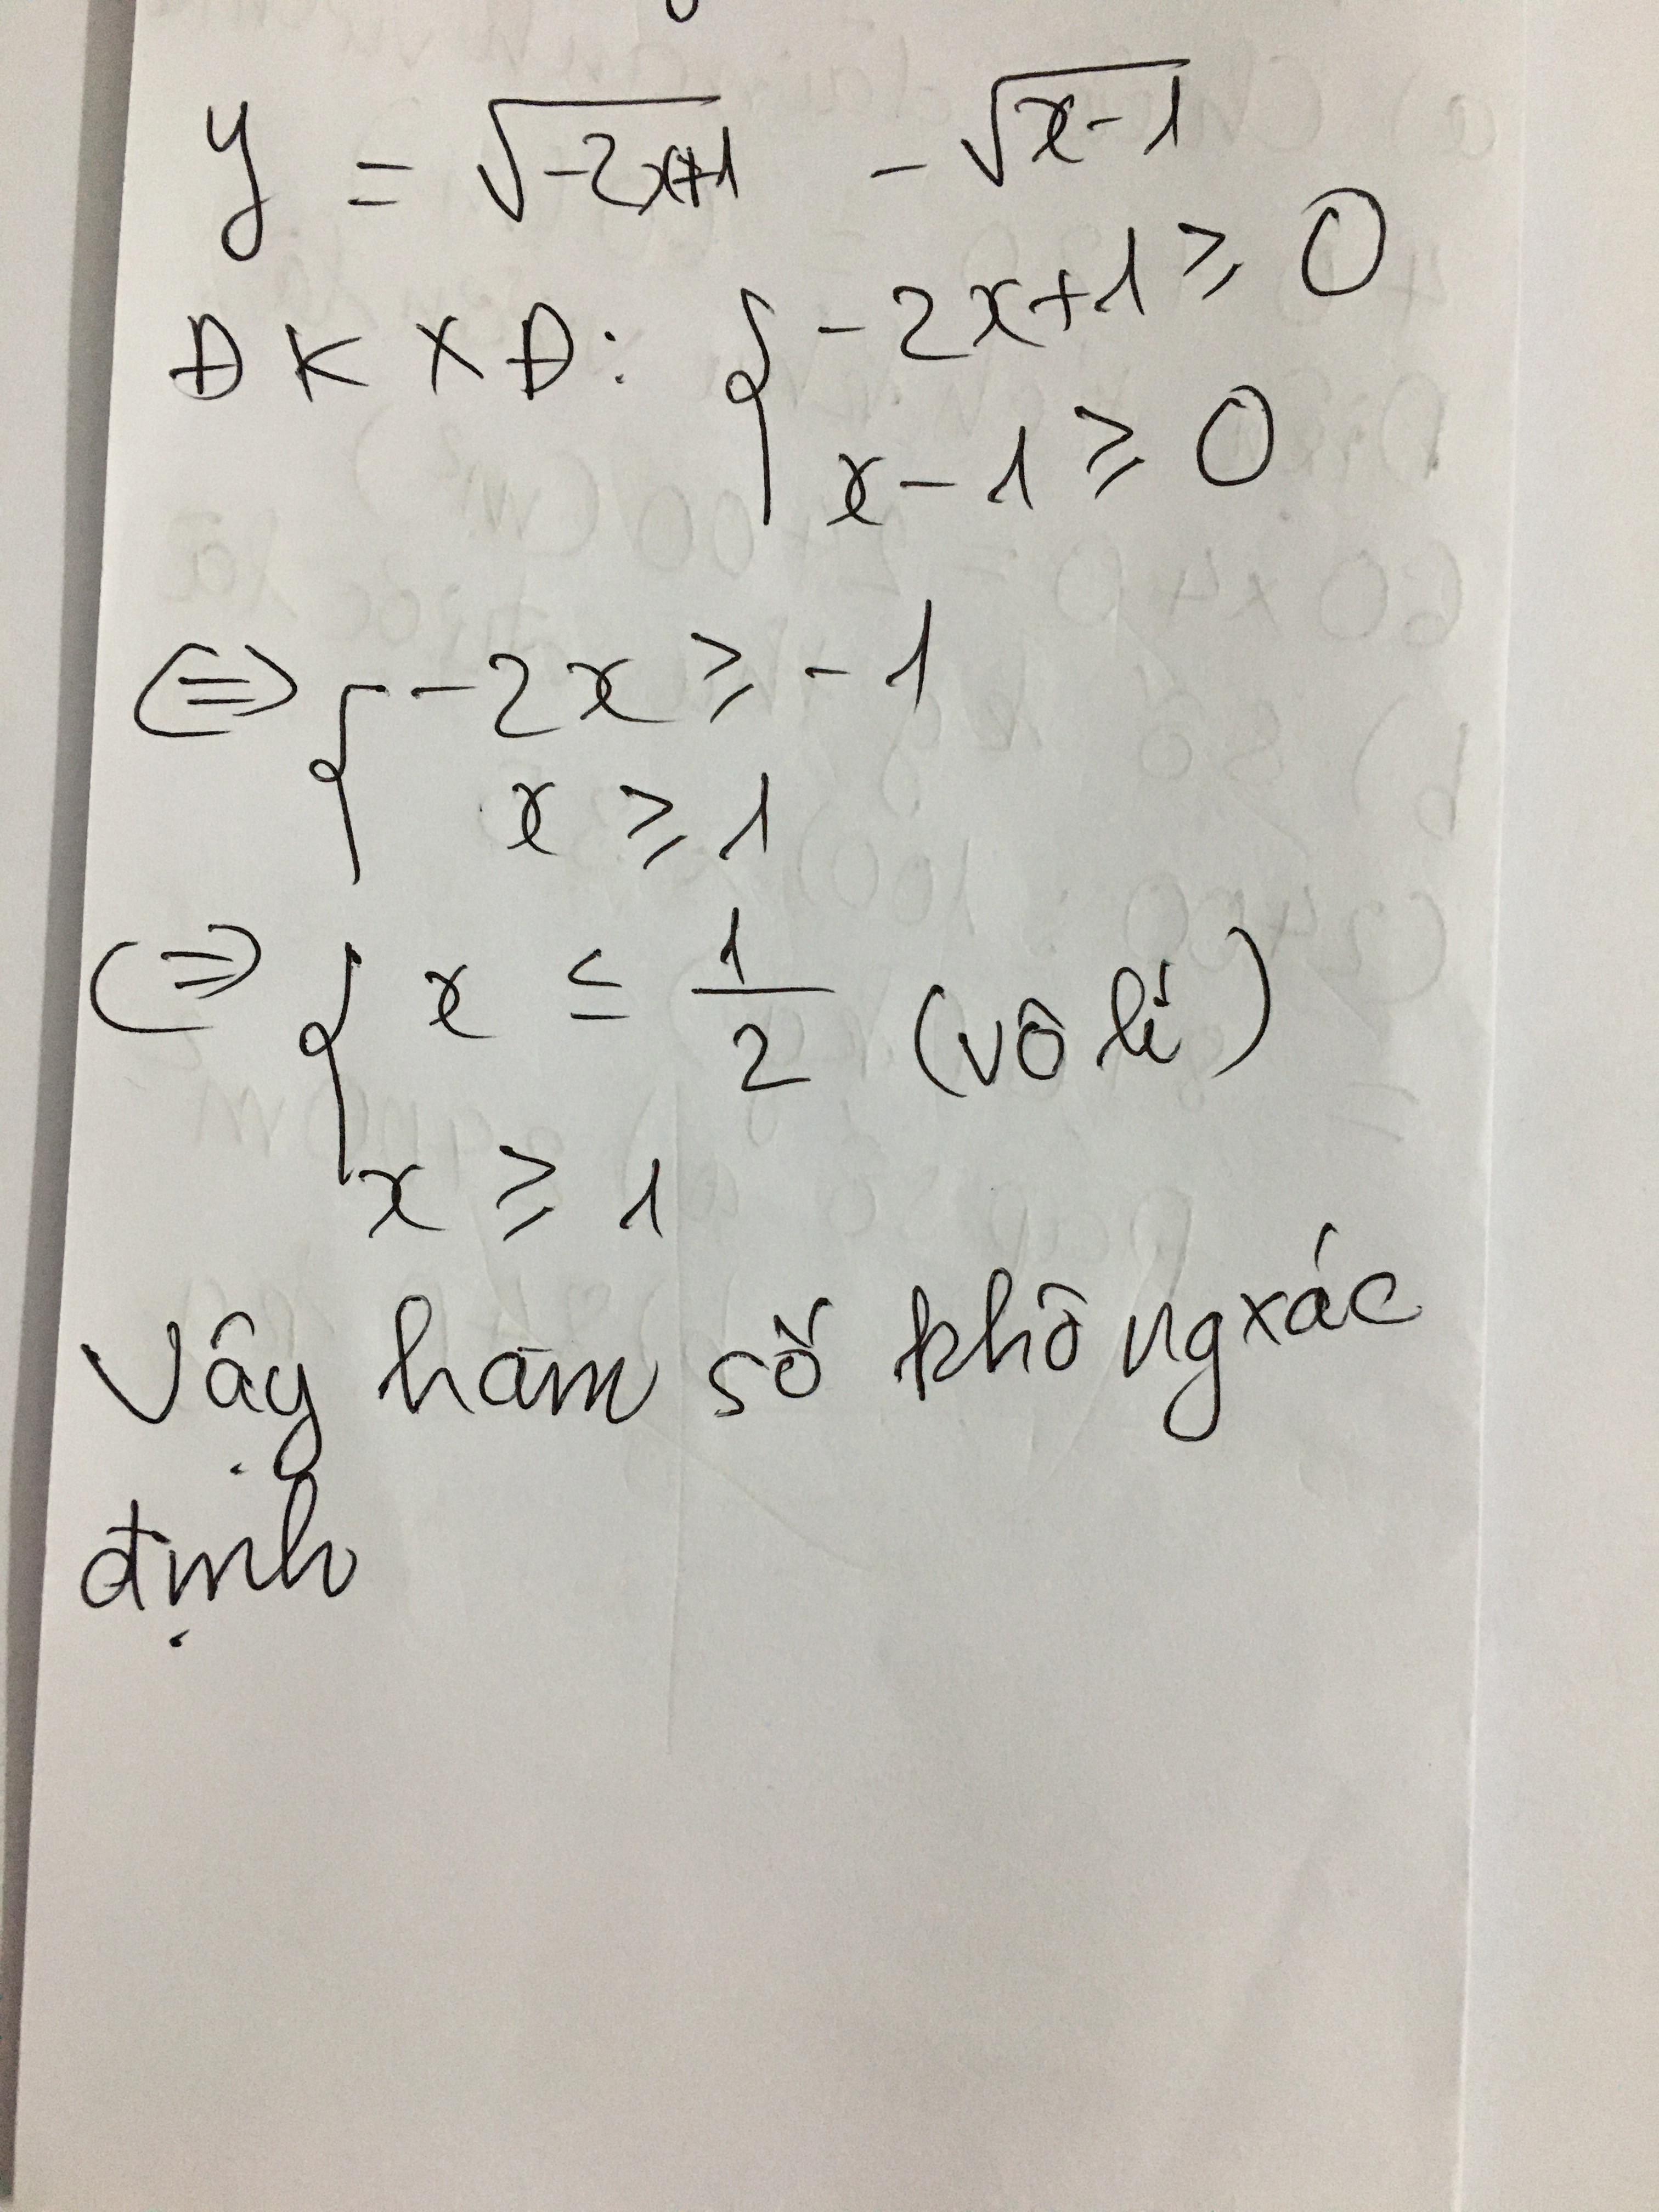 y = √-2x+1 - √x-1
ĐKXĐ: { -2x+1 ≥ 0
x-1 ≥ 0
(=) { -2x ≥ -1
x ≥ 1
(=) { x ≤ 1/2 (vô lí)
x ≥ 1
Vậy hàm số không xác
định